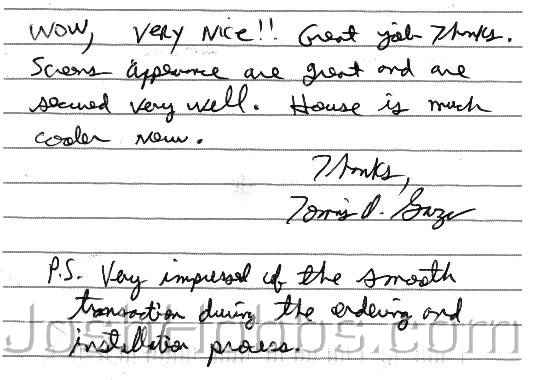 WOW, VERY NICE!! Great job Thanks.
Screens appearance are great and are
secured very well. House is much
cooler now.
Thanks,
P.S. Very impressed of the smooth
transaction during the ordering and
installation process.
JoshHobbs.com